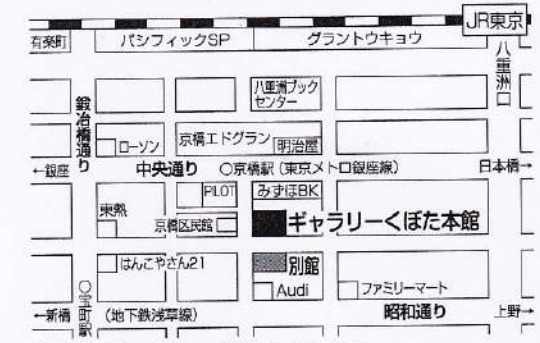 JR東京
有楽町
パシフィックSP
グラントウキョウ
八重洲口
八重洲ブック
センター
鍛冶橋通り
ローソン
京橋エドグラン
明治屋
←銀座
中央通り
○京橋駅(東京メトロ銀座線)
日本橋→
PILOT
みずほBK
東熱
京橋区民館
ギャラリーくぼた本館
はんこやさん21
別館
Audi
ファミリーマート
○宝町駅
←新橋
(地下鉄浅草線)
昭和通り
上野→